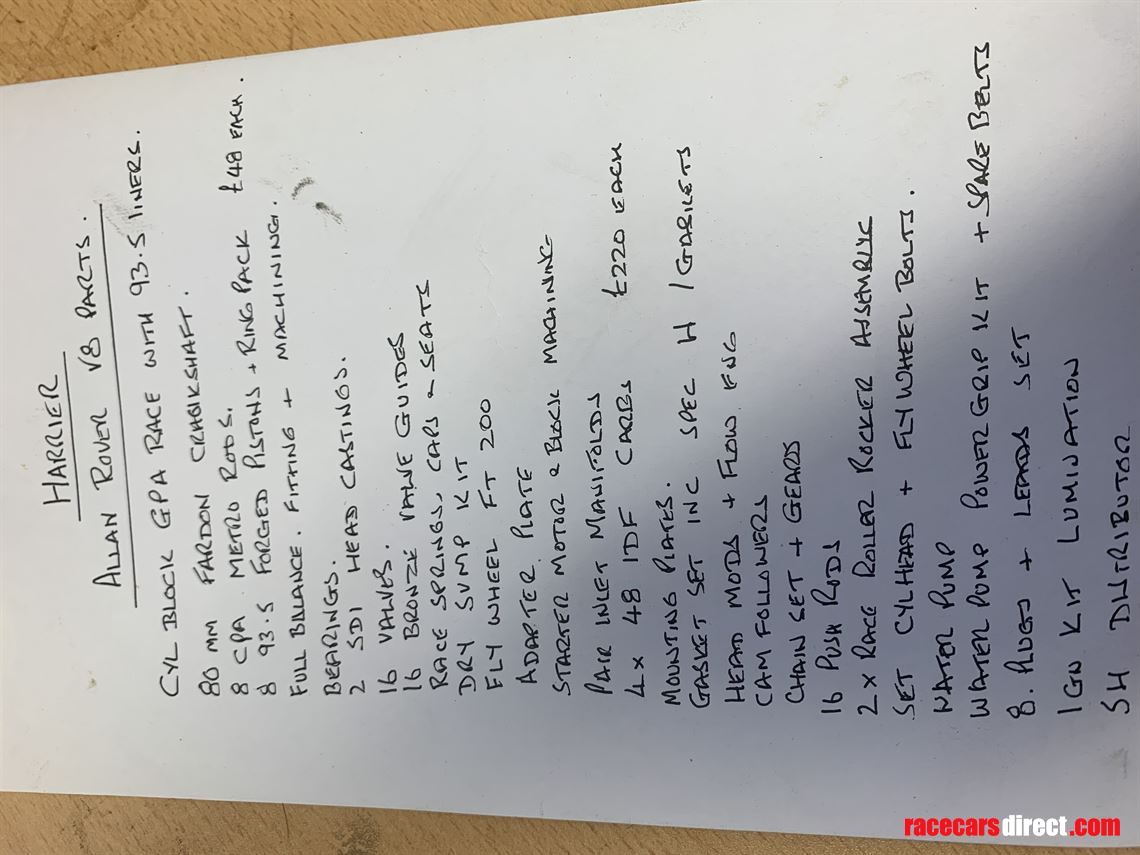 HARRIER
ALLAN ROVER V8 PARTS.
CYL BLOCK GPA RACE WITH 93.5 LINERS.
80 MM FARDON CRANKSHAFT.
8 CPA METRO RODS.
8 93.5 FORGED PISTONS + RING PACK £48 EACH.
FULL BALANCE. FITTING + MACHINING.
BEARINGS.
2 SDI HEAD CASTINGS.
16 VALVES.
16 BRONZE VALVE GUIDES
RACE SPRINGS, CAPS & SEATS
DRY SUMP KIT
FLY WHEEL FT 200
ADAPTER PLATE
STARTER MOTOR & BLOCK MACHINING
PAIR INLET MANIFOLDS
4x 48 IDF CARBS £220 EACH
MOUNTING PLATES.
GASKET SET INC SPEC H / GASKETS
HEAD MODS + FLOW ENG
CAM FOLLOWERS
CHAIN SET + GEARS
16 PUSH RODS
2 x RACE ROLLER ROCKER ASSEMBLIC
SET CYLHEAD + FLYWHEEL BOLTS.
WATER PUMP
WATER PUMP POWER GRIP KIT + SPARE BELTS
8. PLUGS + LEADS SET
IGN KIT LUMINATION
SH DISTRIBUTOR
racecarsdirect.com